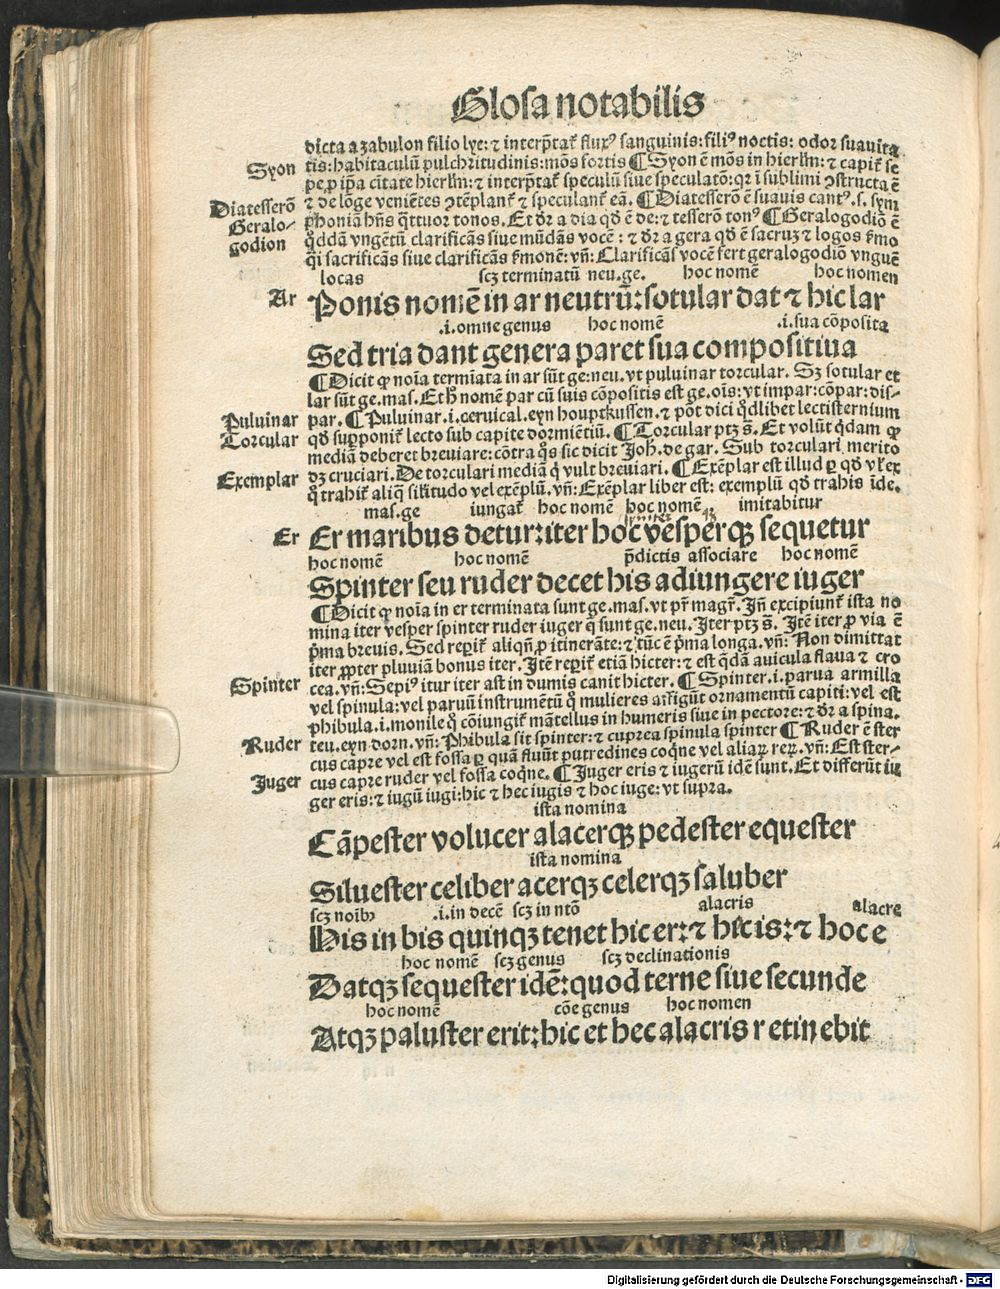 Glosa notabilis
dicta a zabulon filio lye: ⁊ interp̄tat᷑ flux⁹ sanguinis: fili⁹ noctis: odor suauita
Syon tis: habitaculū pulchritudinis: mōs fortis ¶ Syon ē mōs in hierl̄m: ⁊ capit᷑ se
pe, ꝓ ip̄a ciuitate hierl̄m: ⁊ interp̄tat᷑ speculū siue speculatō: qr ī sublimi ꝯstructa ē
Diatesserō ⁊ de lōge veniētes ꝯtēplant᷑ ⁊ speculant᷑ eā. ¶ Diatesserō ē suauis cant⁹. s. sym
Geralo- phoniā hn̄s q̄ttuor tonos. Et dr̄ a dia qd̄ ē de: ⁊ tesserō ton⁹ ¶ Geralogodiō ē
godion q̄ddā vngētū clarificās siue mūdās vocē: ⁊ dr̄ a gera qd̄ ē sacruꝫ ⁊ logos s̄mo
q̄i sacrificās siue clarificās s̄monē: vn̄: Clarificās vocē fert geralogodiō vnguē
locas scꝫ terminatū neu. ge. hoc nomē hoc nomen
Ar Ponis nomē in ar neutrū: sotular dat ⁊ hic lar
.i. omne genus hoc nomē .i. sua cōposita
Sed tria dant genera par et sua compositiua
¶ Dicit ꝙ noīa termīata in ar sūt ge: neu. vt puluinar torcular. Sꝫ sotular et
lar sūt ge. mas. Et h̄ nomē par cū suis cōpositis est ge. oīs: vt impar: cōpar: dis-
Puluinar par. ¶ Puluinar .i. ceruical. eyn houptkussen. ⁊ pōt dici qd̄libet lectisternium
Torcular qd̄ supponit᷑ lecto sub capite dormiētiū. ¶ Torcular ptꝫ s̄. Et volūt q̄dam ꝙ
mediā deberet breuiare: cōtra q̄s sic dicit Joh. de gar. Sub torculari merito
Exemplar dꝫ cruciari. De torculari mediā q̄ vult breuiari. ¶ Exēplar est illud ꝑ qd̄ vl̄ ex
q̄ trahit᷑ aliq̄ sil̄itudo vel exēplū. vn̄: Exēplar liber est: exemplū qd̄ trahis īde.
mas. ge iungat᷑ hoc nomē hoc nomē imitabitur
Er Er maribus detur: iter hoc vesperqꝫ sequetur
hoc nomē hoc nomē p̄dictis associare hoc nomē
Spinter seu ruder decet his adiungere iuger
¶ Dicit ꝙ noīa in er terminata sunt ge. mas. vt pr̄ magr̄. Jn̄ excipiunt᷑ ista no
mina iter vesper spinter ruder iuger q̄ sunt ge. neu. Jter ptꝫ s̄. Jtē iter ꝓ via ē
p̄ma breuis. Sed reꝑit᷑ aliqn̄ ꝓ itinerāte: ⁊ tūc ē p̄ma longa. vn̄: Non dimittat
iter ꝓpter pluuiā bonus iter. Jtē reꝑit᷑ etiā hicter: ⁊ est q̄dā auicula flaua ⁊ cro
Spinter cea. vn̄: Sepi⁹ itur iter ast in dumis canit hicter. ¶ Spinter .i. parua armilla
vel spinula: vel paruū instrumētū q̄ mulieres affigūt ornamentū capiti: vel est
phibula .i. monile q̄ cōiungit᷑ mātellus in humeris siue in pectore: ⁊ dr̄ a spina.
Ruder teu. eyn dorn. vn̄: Phibula sit spinter: ⁊ cuprea spinula spinter ¶ Ruder ē ster
cus capre vel est fossa ꝑ quā fluūt putredines coq̄ne vel aliaꝝ reꝝ. vn̄: Est ster-
Juger cus capre ruder vel fossa coq̄ne. ¶ Juger eris ⁊ iugerū idē sunt. Et differūt iu
ger eris: ⁊ iugū iugi: hic ⁊ hec iugis ⁊ hoc iuge: vt supra.
ista nomina
Cāpester volucer alacerqꝫ pedester equester
ista nomina
Siluester celiber acerqꝫ celerqꝫ saluber
scꝫ noībꝫ .i. in decē scꝫ in ntō alacris alacre
His in bis quinqꝫ tenet hic er: ⁊ hec is: ⁊ hoc e
hoc nomē scꝫ genus scꝫ declinationis
Datqꝫ sequester idē: quod terne siue secunde
hoc nomē cōe genus hoc nomen
Atqꝫ paluster erit: hic et hec alacris retinebit
Digitalisierung gefördert durch die Deutsche Forschungsgemeinschaft - DFG